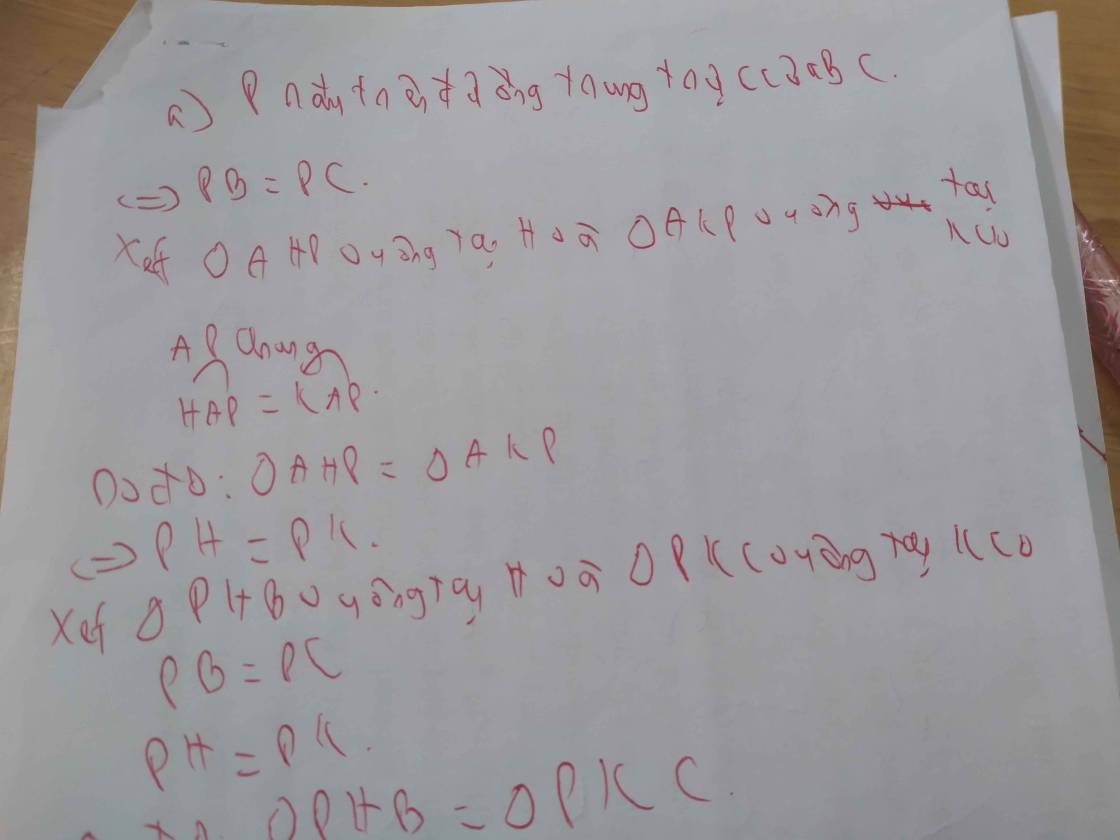 a) P nằm trên đường trung trực của BC.
<=> PB = PC.
Xét Δ AHP vuông tại H và Δ AKP vuông tại
K có
AP chung
HAP = KAP.
Do đó: Δ AHP = Δ AKP
<=> PH = PK.
Xét Δ PHB vuông tại H và Δ PKC vuông tại K có
PB = PC
PH = PK.
Δ PHB = Δ PKC.